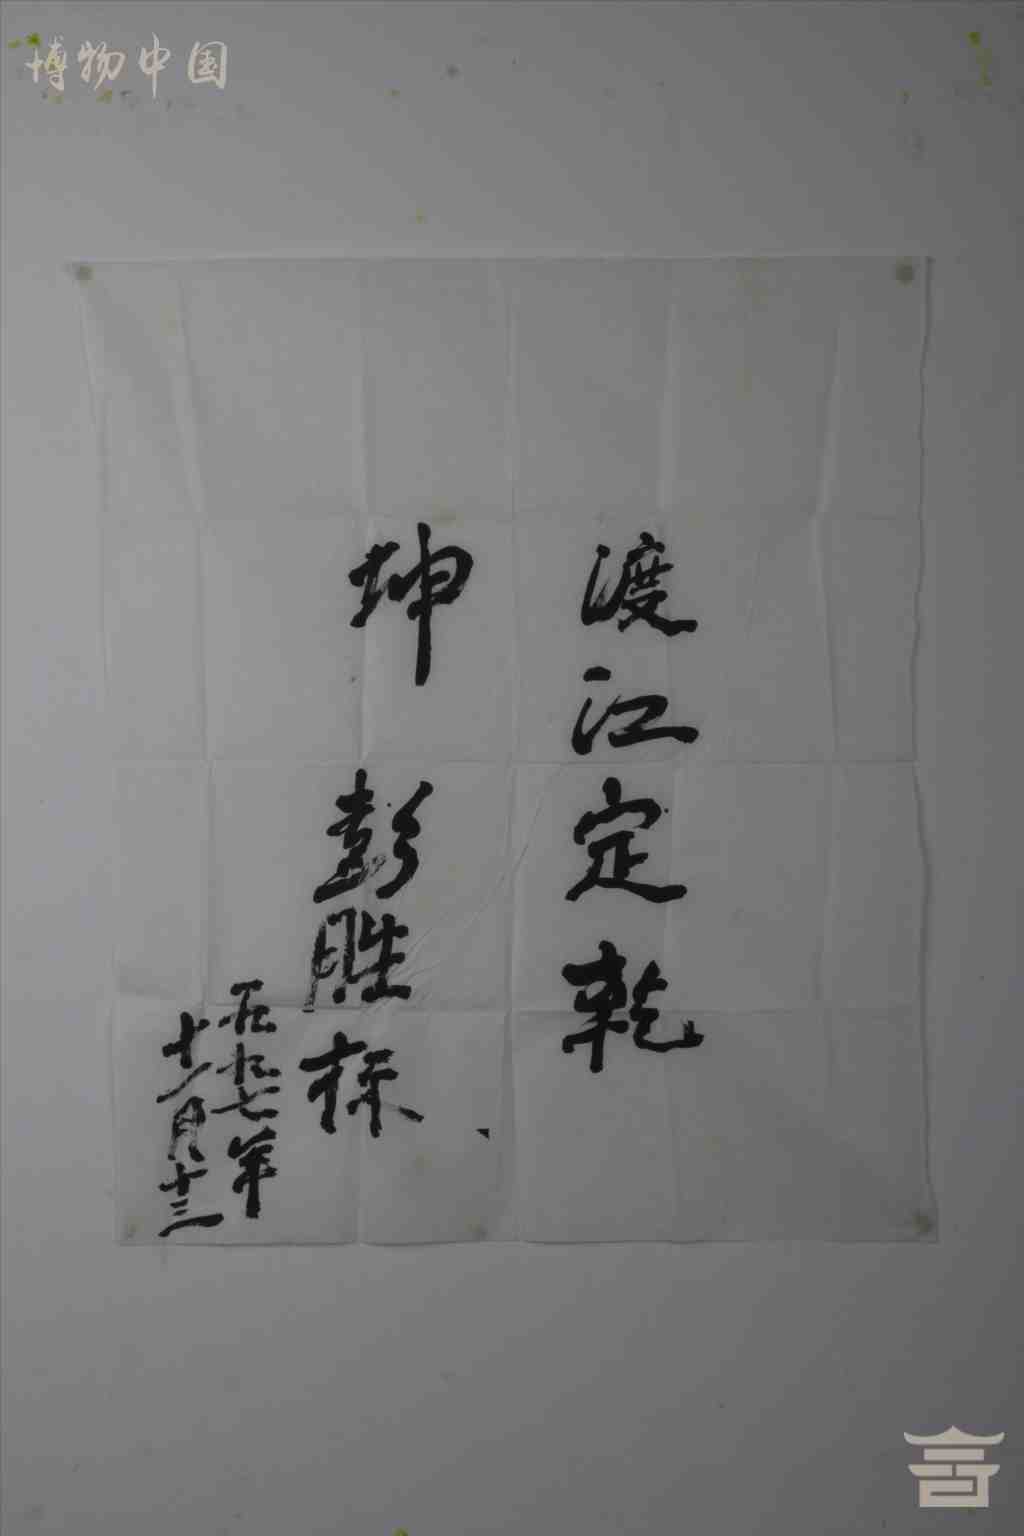 博物中国
渡江定乾
坤
彭胜标
一九九七年
十一月十三